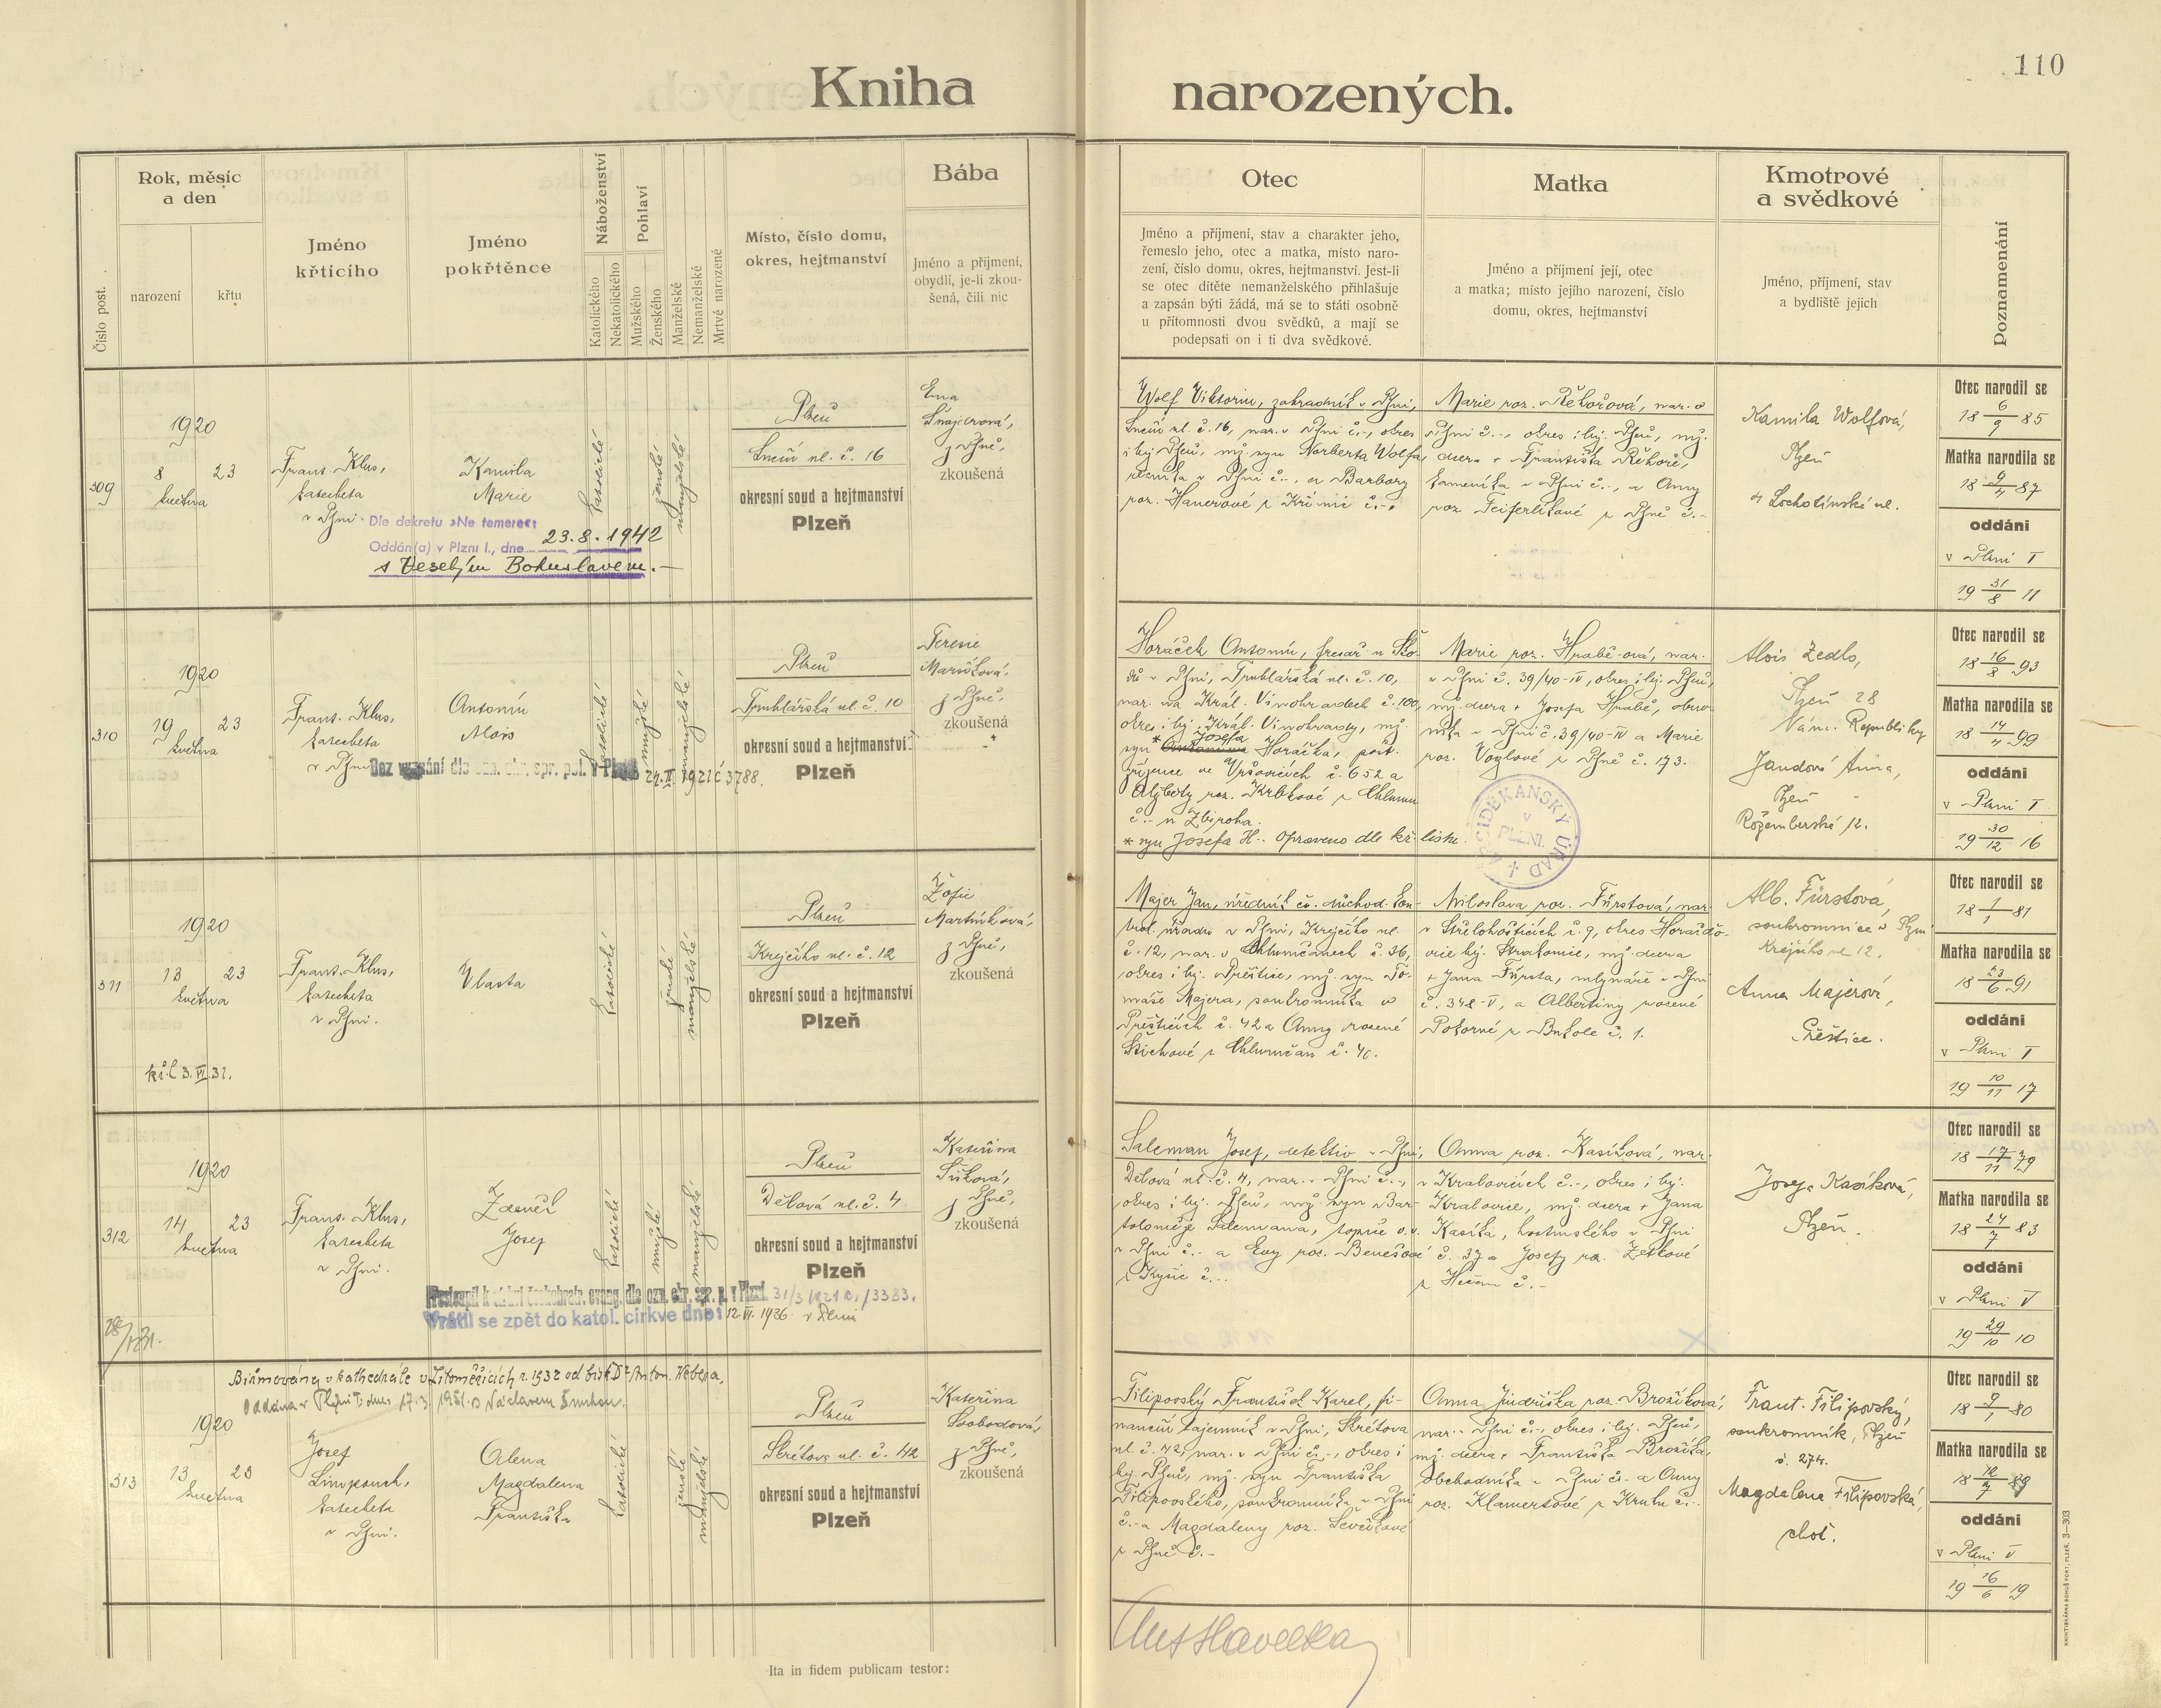 110
Kniha narozených.
Číslo post.
Rok, měsíc
a den
narození
křtu
Jméno
křtícího
Jméno
pokřtěnce
Náboženství
Katolického
Nekatolického
Pohlaví
Mužského
Ženského
Manželské
Nemanželské
Mrtvě narozené
Místo, číslo domu,
okres, hejtmanství
Bába
Jméno a příjmení,
obydlí, je-li zkou-
šená, čili nic
Otec
Jméno a příjmení, stav a charakter jeho,
řemeslo jeho, otec a matka, místo naro-
zení, číslo domu, okres, hejtmanství. Jest-li
se otec dítěte nemanželského přihlašuje
a zapsán býti žádá, má se to státi osobně
u přítomnosti dvou svědků, a mají se
podepsati on i ti dva svědkové.
Matka
Jméno a příjmení její, otec
a matka; místo jejího narození, číslo
domu, okres, hejtmanství
Kmotrové
a svědkové
Jméno, příjmení, stav
a bydliště jejich
Poznamenání
309
1920
8 23
května
Frant. Klus,
katecheta
v Plzni.
Kamila
Marie
katolické
ženské
manželské
Dle dekretu »Ne temere«:
Oddán(a) v Plzni I., dne 23.8.1942
s Veselým Bohuslavem.
Plzeň
ul. č. 16
okresní soud a hejtmanství
Plzeň
z Plzně,
zkoušená
Wolf Viktorin, zahradník v Plzni,
ul. č. 16, nar. v Plzni č.-, okres
i hej. Plzeň, mž. syn Norberta Wolfa,
řezníka v Plzni č.-, a Barbory
roz. Hanerové z Křimic č.-.
Marie roz. Řehořová, nar. v
Plzni č.-, okres i hej. Plzeň, mž.
dcera + Františka Řehoře,
kameníka v Plzni č.-, a Anny
roz. Feiferlíkové z Plzně č.-
Kamila Wolfová,
Plzeň
Lochotínská ul.
Otec narodil se
18 6/9 85
Matka narodila se
18 9/4 87
oddáni
v Plzni I
19 31/8 11
310
1920
19 23
května
Frant. Klus,
katecheta
v Plzni
Antonín
Alois
katolické
mužské
manželské
Bez vyznání dle ozn. okr. spr. pol. v Plzni 24.II.1921 č 3788.
Plzeň
Truhlářská ul. č. 10
okresní soud a hejtmanství
Plzeň
Terezie
z Plzně,
zkoušená
Horáček Antonín, fresař u Ško-
dů v Plzni, Truhlářská ul. č. 10,
nar. na Král. Vinohradech č. 100,
okres i hej. Král. Vinohrady, mž.
syn * Josefa Horáčka, pošt.
zřízence ve Vršovicích č. 652 a
Alžběty roz. Krbkové z Chlumu
č.- u Zbiroha.
* syn Josefa H.- Opraveno dle kř. listu.
Marie roz. Hrabě-ová, nar.
v Plzni č. 39/40-IV, okres i hej. Plzeň,
mž. dcera + Josefa Hrabě, obuv-
níka v Plzni č. 39/40-IV a Marie
roz. Voglové z Plzně č. 173.
ARCIDĚKANSKÝ ÚŘAD
V
PLZNI.
Alois Zedlo,
Plzeň 28
Nám. Republiky
Jandová Anna,
Plzeň
Rožemberská 12.
Otec narodil se
18 16/8 93
Matka narodila se
18 14/4 99
oddáni
v Plzni I
19 30/12 16
311
1920
13 23
května
kř.l. 3.VI.31.
Frant. Klus,
katecheta
v Plzni.
Vlasta
katolické
ženské
manželské
Plzeň
Krejčího ul. č. 12
okresní soud a hejtmanství
Plzeň
Žofie
Martínková,
z Plzně,
zkoušená
Majer Jan, úředník čs. důchod. kon-
trol. úřadu v Plzni, Krejčího ul.
č. 12, nar. v Chlumčanech č. 36,
okres i hej. Přeštice, mž. syn To-
máše Majera, soukromníka v
Přešticích č. 42 a Anny rozené
Štichové z Chlumčan č. 40.
Miloslava roz. Fürstová, nar.
v Střelohošticích č. 9, okres Horažďo-
vice hej. Strakonice, mž. dcera
+ Jana Fürsta, mlynáře v Plzni
č. 348-V, a Albertiny rozené
Pokorné z Brkole č. 1.
Alb. Fürstová,
soukromnice v Plzni
Krejčího ul 12.
Anna Majerová,
Přeštice.
Otec narodil se
18 1/1 81
Matka narodila se
18 23/6 91
oddáni
v Plzni I
19 10/11 17
312
1920
14 23
května
Frant. Klus,
katecheta
v Plzni.
Zdeněk
Josef
katolické
mužské
manželské
Přestoupil k církvi českobratr. evang. dle ozn. okr. spr. p. v Plzni. 31/3 1921 č. 13383.
Vrátil se zpět do katol. církve dne: 12.VI.1936 v Plzni
Plzeň
Dělová ul. č. 4
okresní soud a hejtmanství
Plzeň
Kateřina
z Plzně,
zkoušená
Saleman Josef, detektiv v Plzni,
Dělová ul. č. 4, nar. v Plzni č.-,
okres i hej. Plzeň, mž. syn Bar-
toloměje Salemana, topiče v.v.
v Plzni č.- a Evy roz. Benešové
z Kyšic č.-.
Anna roz. Kasíková, nar.
v Kralovicích č.-, okres i hej.
Kralovice, mž. dcera + Jana
Kasíka, hostinského v Plzni
č. 37 a Josefy roz. Zelkové
č.-
Josefa Kasíková,
Plzeň.
Otec narodil se
18 17/11 79
Matka narodila se
18 24/7 83
oddáni
v Plzni V
19 29/10 10
313
Biřmována v kathedrále v Litoměřicích r. 1932 od bisk. Dr Anton. Webera.
Oddána v Plzni I. dnes 17.3. 1951 s Václavem
1920
13 23
května
Josef
Limpouch,
katecheta
v Plzni.
Alena
Magdalena
Františka
katolické
ženské
manželské
Plzeň
Skrétova ul. č. 42
okresní soud a hejtmanství
Plzeň
Kateřina
Svobodová,
z Plzně,
zkoušená
Filipovský František Karel, fi-
nanční tajemník v Plzni, Skrétova
ul. č. 42, nar. v Plzni č.-, okres i
hej. Plzeň, mž. syn Františka
Filipovského, soukromníka v Plzni
č.- a Magdaleny roz. Ševčíkové
z Plzně č.-
Anna Jindřiška roz. Brožíková,
nar. v Plzni č.-, okres i hej. Plzeň,
mž. dcera + Františka Brožíka
obchodníka v Plzni č.- a Anny
roz. Klamertové z Kruhu č.-.
Frant. Filipovský,
soukromník, Plzeň
č. 274.
Magdalena Filipovská,
choť.
Otec narodil se
18 9/1 80
Matka narodila se
18 12/7 89
oddáni
v Plzni V
19 16/6 19
Ita in fidem publicam testor:
Ant Havelka
KNIHTISKÁRNA BOHUŠ PORT, PLZEŇ. 3—303